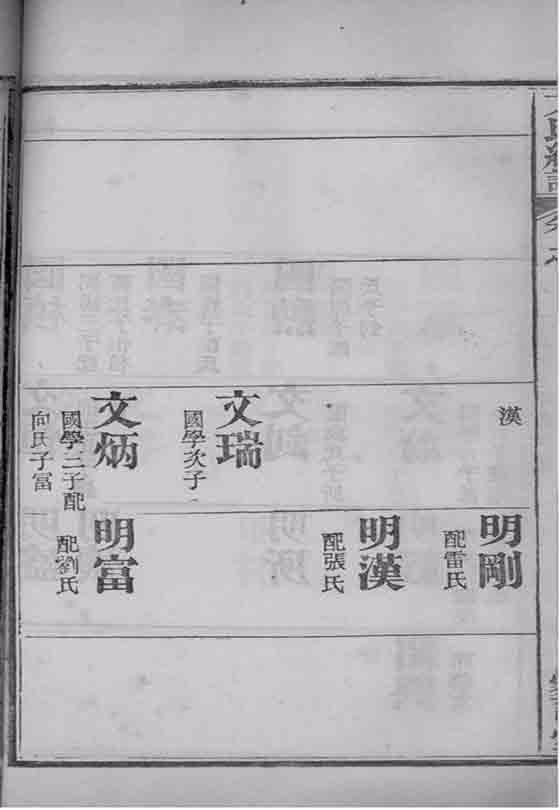 漢
明剛
配雷氏
明漢
配張氏
文瑞
國學次子
文炳
國學三子配
向氏子富
明富
配劉氏